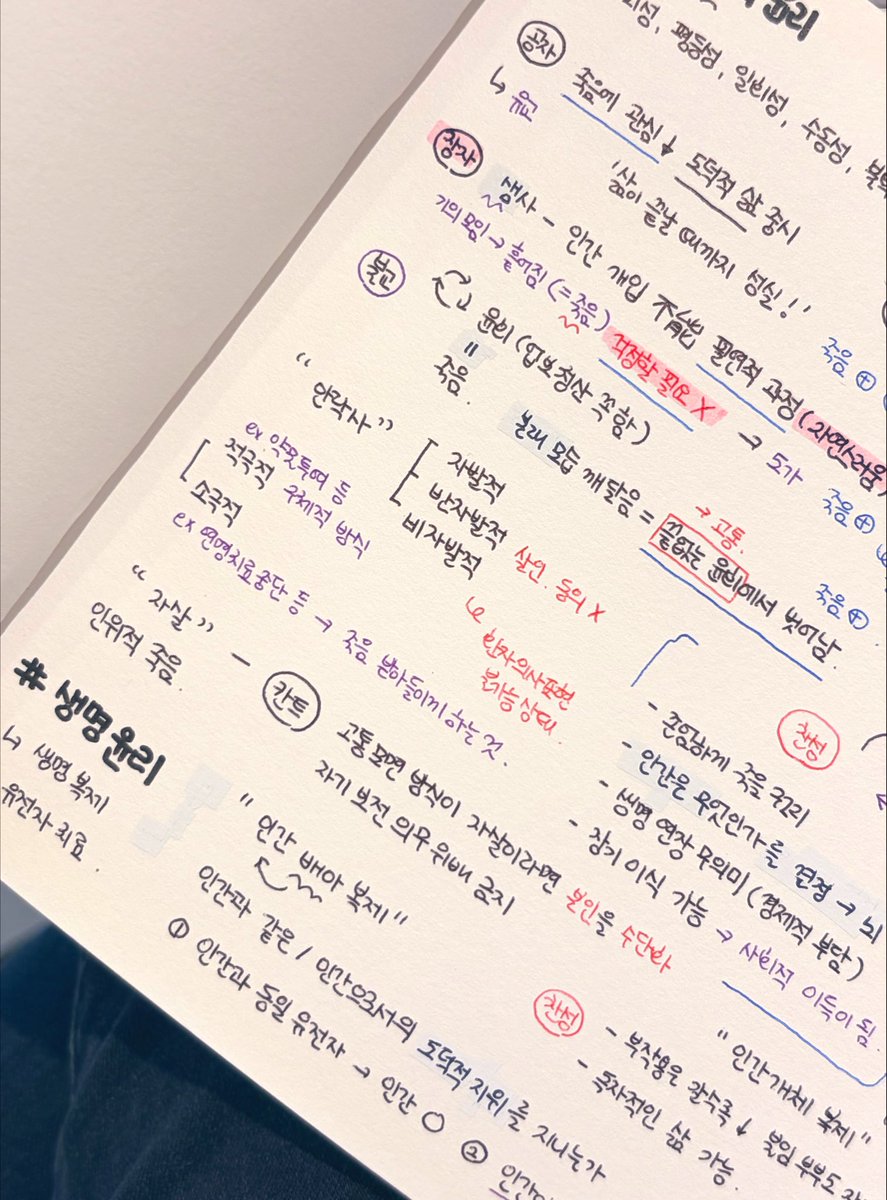 윤리
성, 평등성, 일회성, 수동성,
공자 죽음에 관심↓ 도덕적 삶 중시
↳ 유교
'삶이 끝날 때까지 성실!'
장자 생사 - 인간 개입 不能 필연적 과정 (자연스러움)
기의 모임 → 흩어짐 (=죽음) 걱정할 필요 X → 도가
죽음 ⊕
불교 윤회 (업보 청산 쪽함)
=
죽음.
죽음 ⊕
본래 모습 깨달음 = 끝없는 윤회에서 벗어남.
→ 고통.
죽음 ⊕
"안락사"
ex 약물 투여 등
적극적 구체적 방식
소극적
ex 연명치료 중단 등 → 죽음 받아들이게 하는 것.
자발적
반자발적 살인. 동의 X
비자발적
↳ 환자 의사표현
불가능 상태.
"자살" - 칸트 고통 모면 방식이 자살이라면 본인을 수단화
인위적 죽음. 자기 보전 의무 위배 금지
찬성
- 존엄하게 죽을 권리
- 인간은 무엇인가를 결정 → 뇌
- 생명 연장 무의미 (경제적 부담)
- 장기 이식 가능 → 사회적 이득이 됨.
# 생명 윤리
↳ 생명 복제
유전자 치료.
"인간 배아 복제"
인간과 같은 / 인간으로서의 도덕적 지위를 지니는가
① 인간과 동일 유전자 → 인간 ○ ②
"인간 개체 복제"
찬성
- 부작용은 갈수록 ↓ 불임 부부도
- 독자적인 삶 가능.